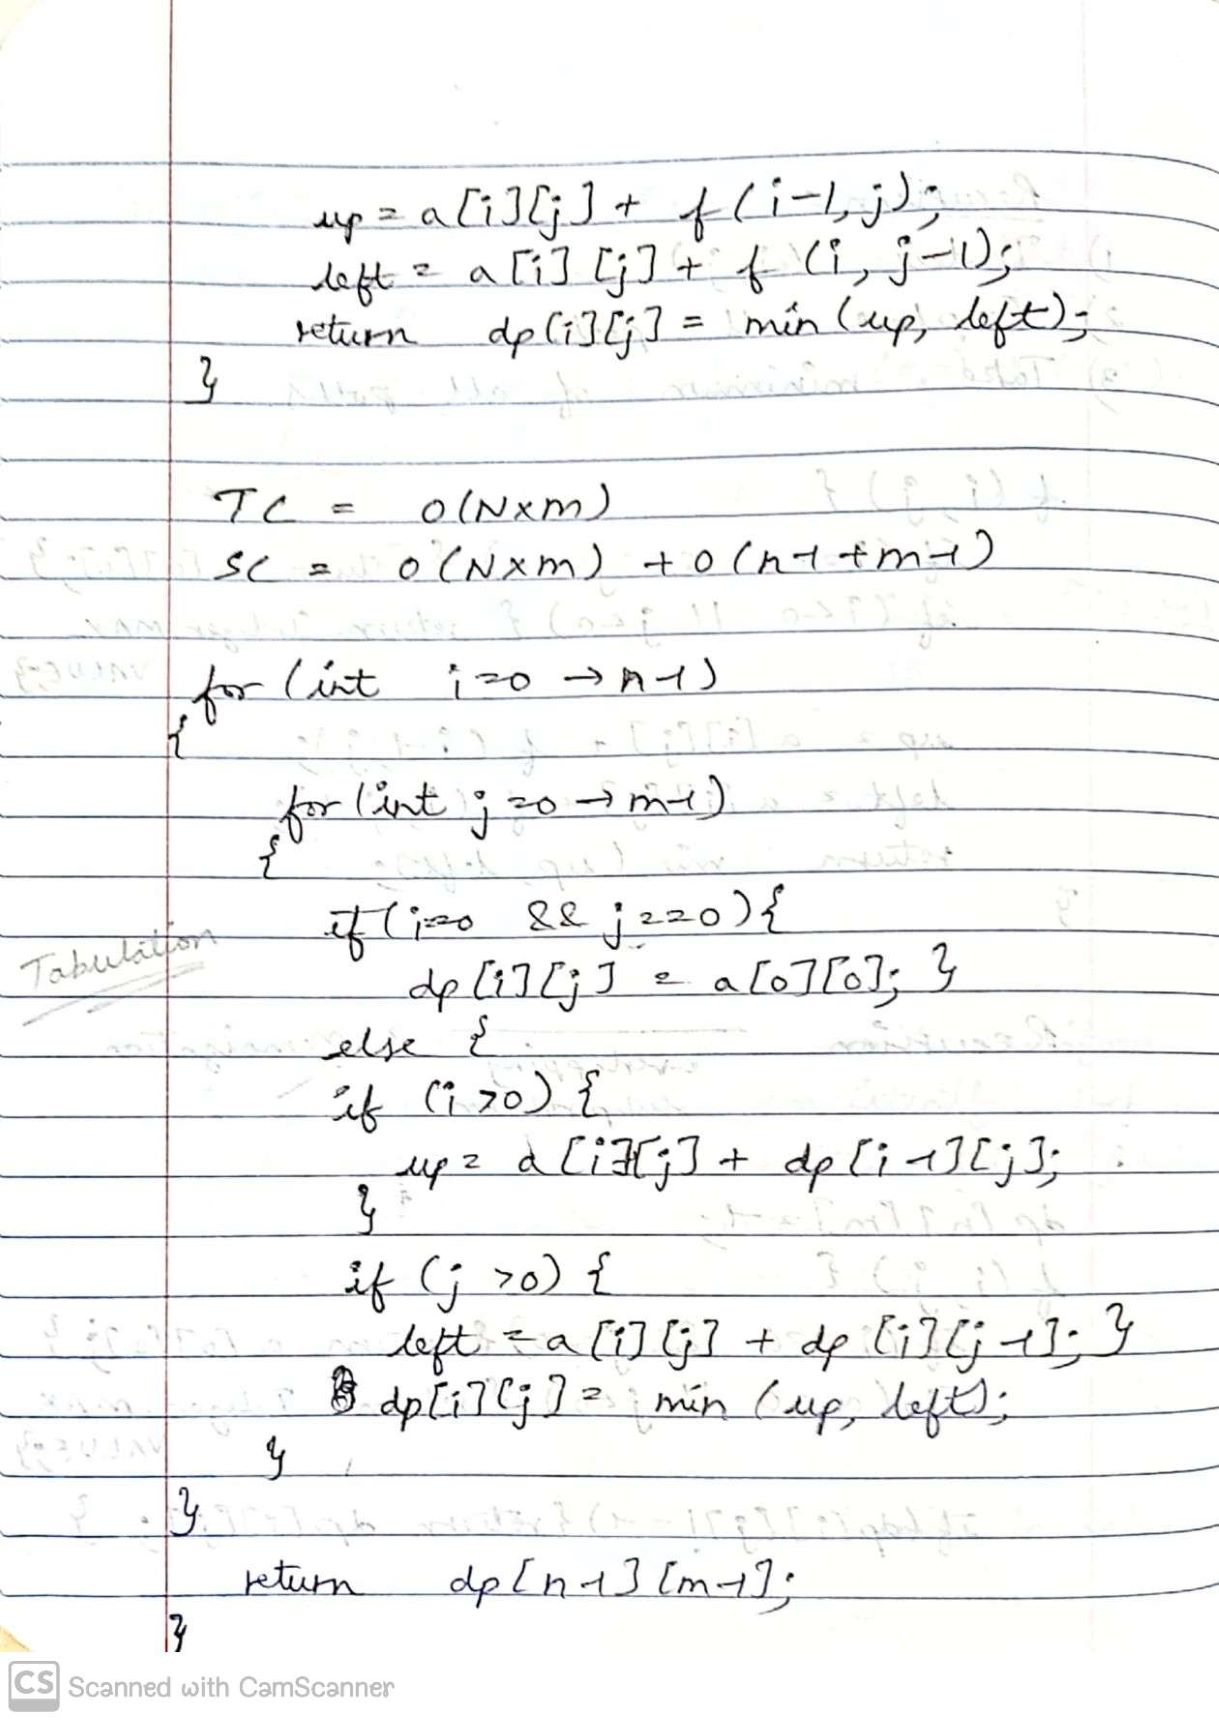 up = a[i][j] + f(i-1, j);
left = a[i][j] + f(i, j-1);
return dp[i][j] = min(up, left);
}
TC = O(Nxm)
SC = O(Nxm) + O(n-1+m-1)
for (int i=0 → n-1)
{
for (int j=0 → m-1)
{
if (i==0 && j==0) {
Tabulation
dp[i][j] = a[0][0]; }
else {
if (i>0) {
up = a[i][j] + dp[i-1][j];
}
if (j>0) {
left = a[i][j] + dp[i][j-1]; }
dp[i][j] = min(up, left);
}
}
return dp[n-1][m-1];
}
CS Scanned with CamScanner